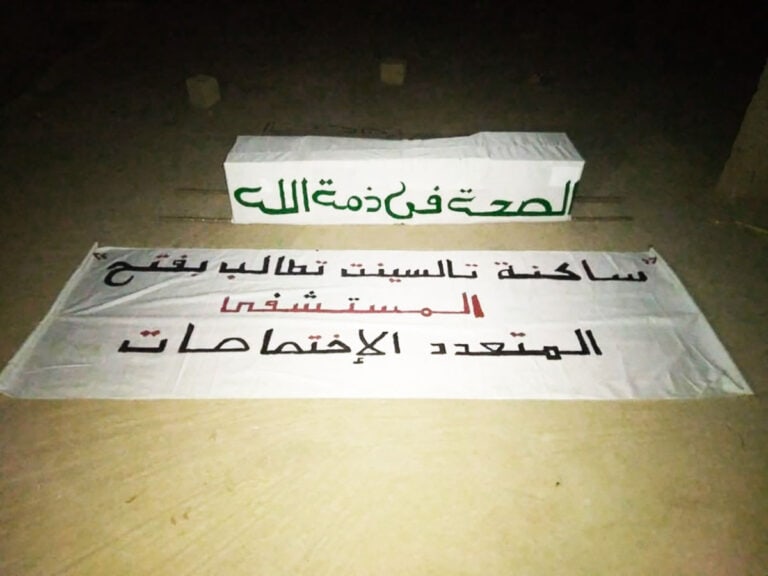 الصحة في ذمة الله
"ساكنة تالسينت تطالب بفتح"
المستشفى
المتعدد الإختصاصات